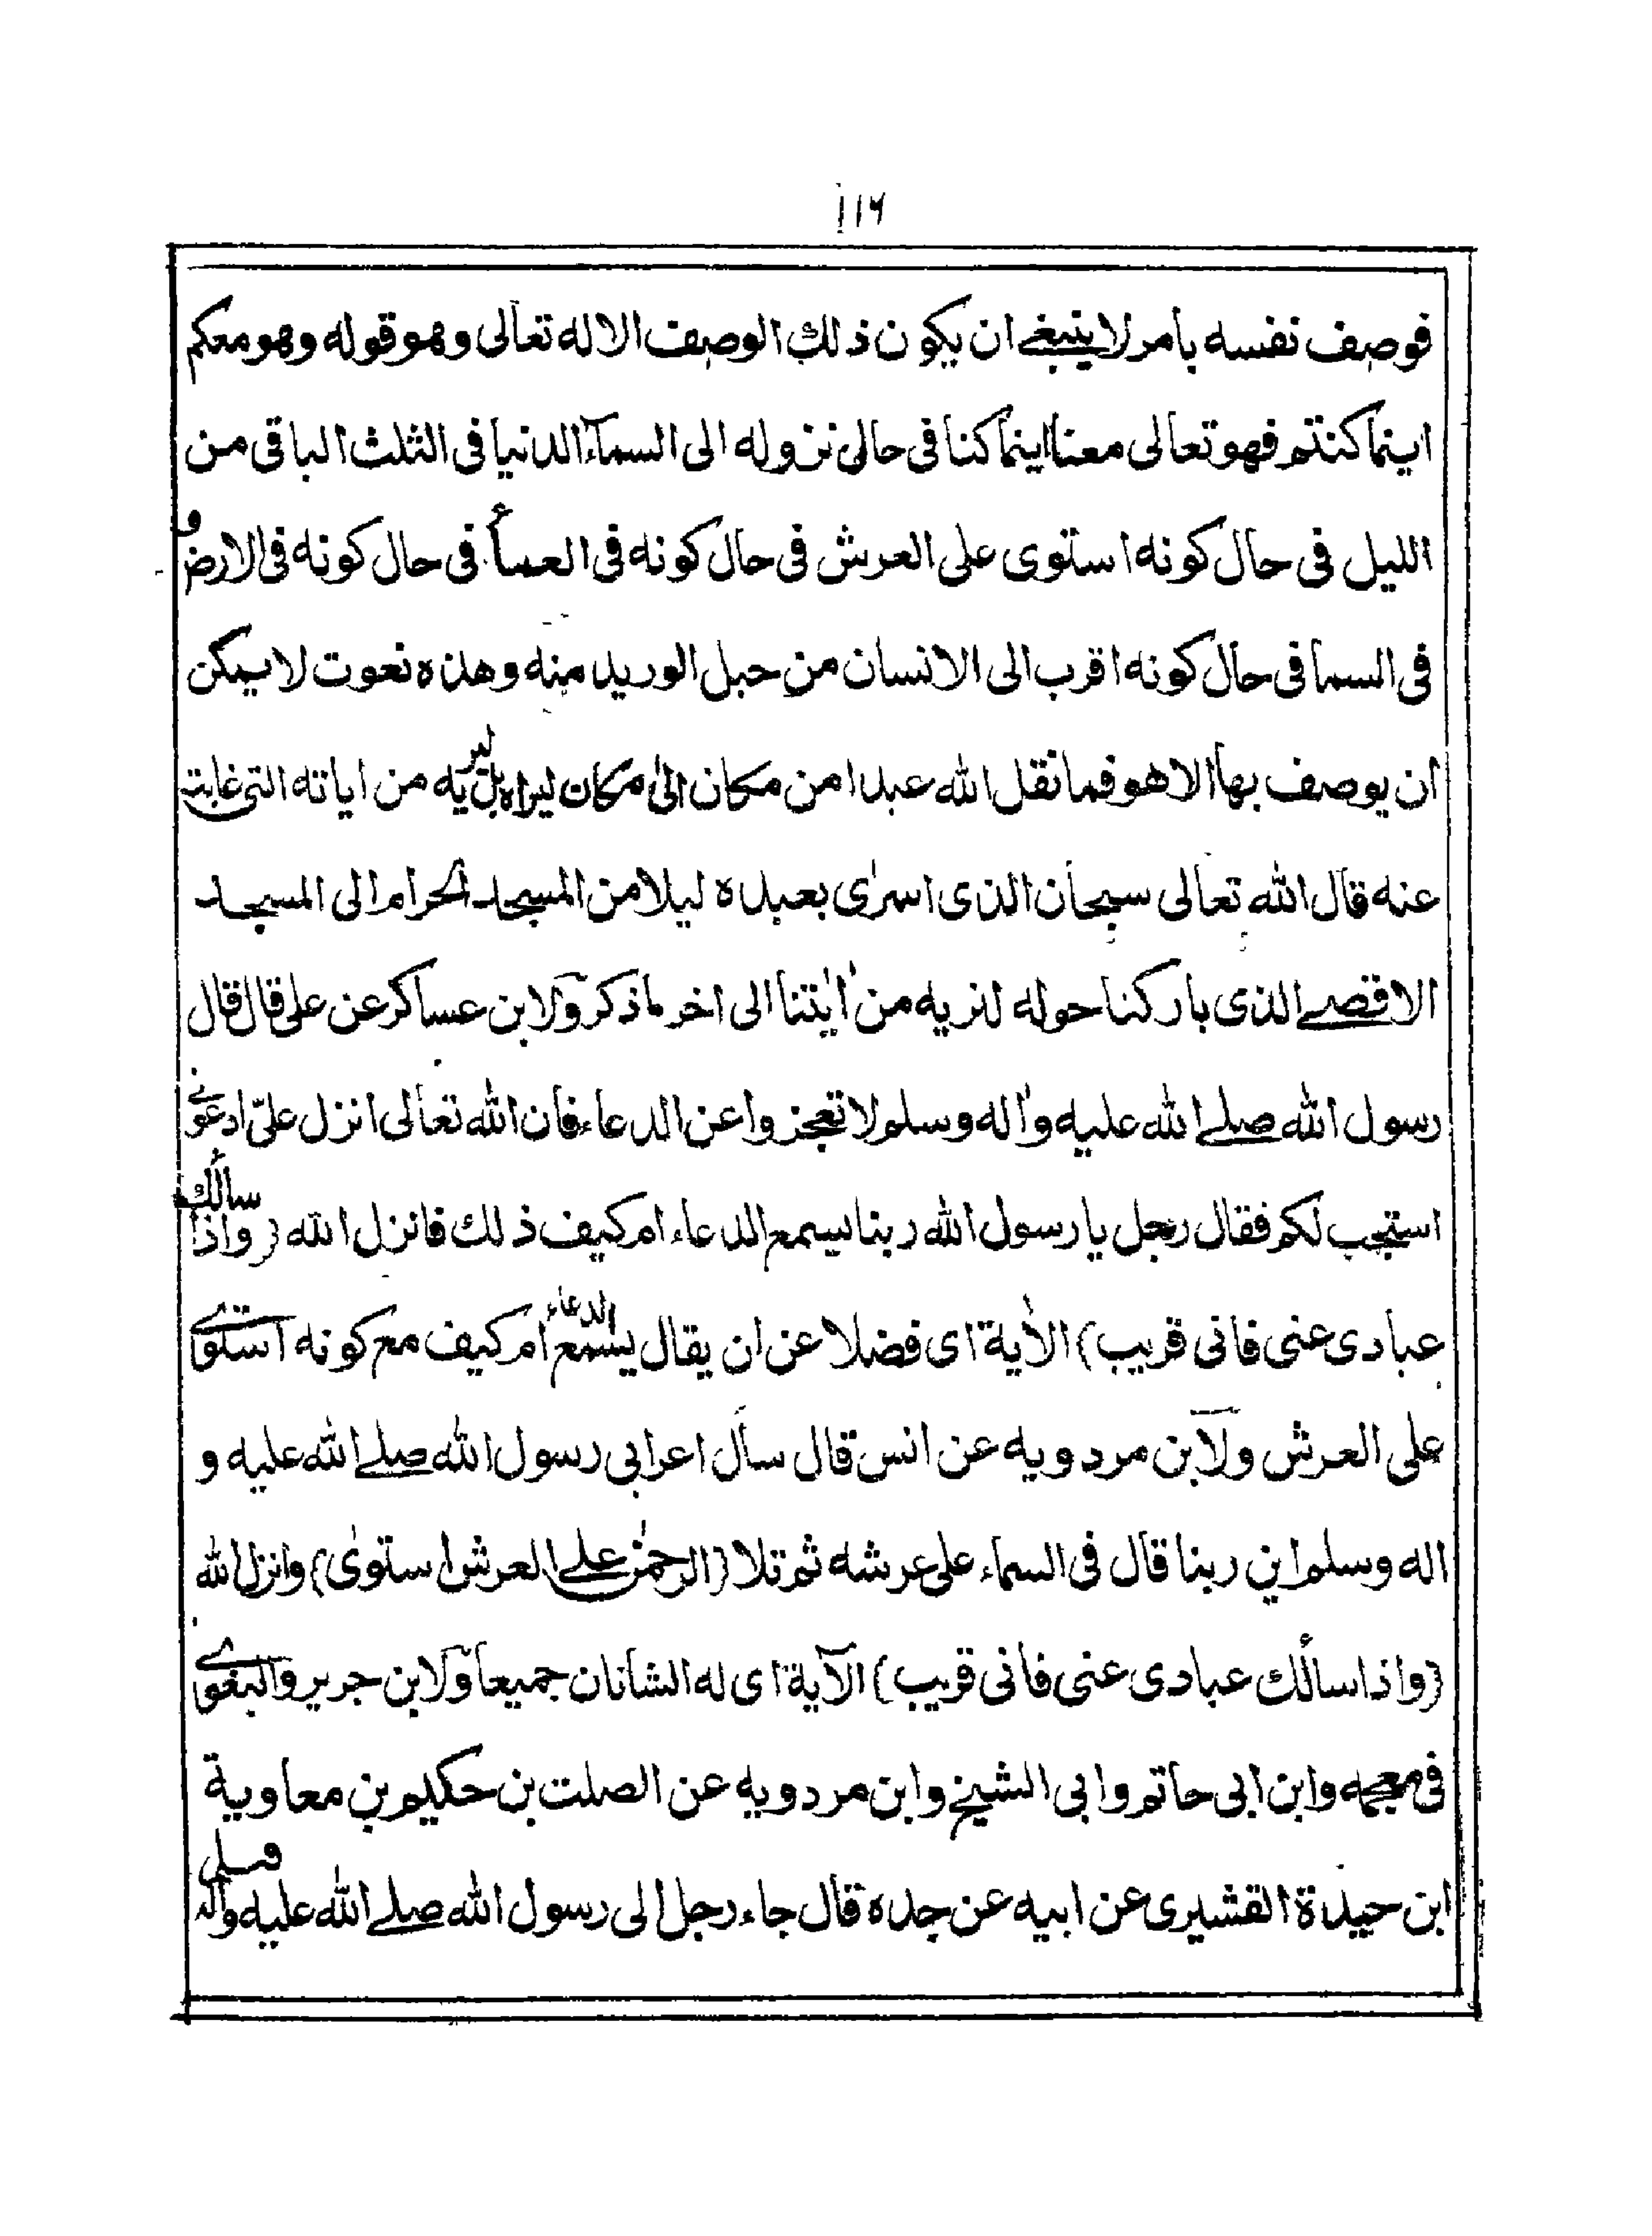 ١١٦
فوصف نفسه بأمر لا ينبغے ان يكون ذلك الوصف الا له تعالى وهو قوله وهو معكم
اينما كنتم فهو تعالى معنا اينما كنا فى حالى نزوله الى السمآء الدنيا فى الثلث الباقى من
الليل فى حال كونه استوى على العرش فى حال كونه فى العمأء فى حال كونه فى الارض و
فى السما فى حال كونه اقرب الى الانسان من حبل الوريد منه وهذه نعوت لا يمكن
ان يوصف بها الا هو فما نقل الله عبدا من مكان الى مكان ليراه بل ليريه من اياته التى غابت
عنه قال الله تعالى سبحان الذى اسرى بعبده ليلا من المسجد الحرام الى المسجد
الاقصے الذى باركنا حوله لنريه من أيتنا الى اخر ما ذكر ولابن عساكر عن على قال قال
رسول الله صلے الله عليه واله وسلم لا تعجزوا عن الدعاء فان الله تعالى انزل علىّ ادعونے
استجب لكم فقال رجل يا رسول الله ربنا يسمع الدعاء ام كيف ذلك فانزل الله (واذا سألك
عبادى عنى فانى قريب) الأية اى فضلا عن ان يقال يسمع الدعاء ام كيف مع كونه استوے
على العرش ولابن مردويه عن انس قال سأل اعرابى رسول الله صلے الله عليه و
اله وسلم اين ربنا قال فى السماء على عرشه ثم تلا (الرحمن علے العرش استوى) وانزل الله
(واذا سألك عبادى عنى فانى قريب) الآية اى له الشانان جميعا ولابن جرير والبغوے
فى معجمه وابن ابى حاتم وابى الشيخ وابن مردويه عن الصلت بن حكيم بن معاوية
ابن حيدة القشيرى عن ابيه عن جده قال جاء رجل الى رسول الله صلے الله عليه واله